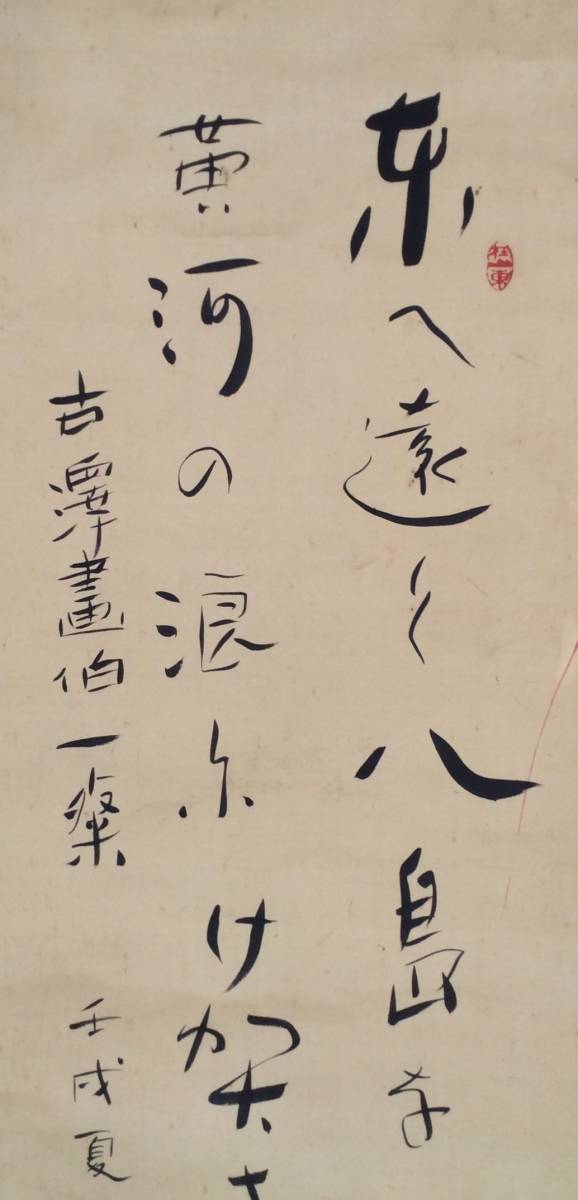 東へ遠く八島を
黄河の浪尓け賀
古澤畫伯一粲
壬戌夏